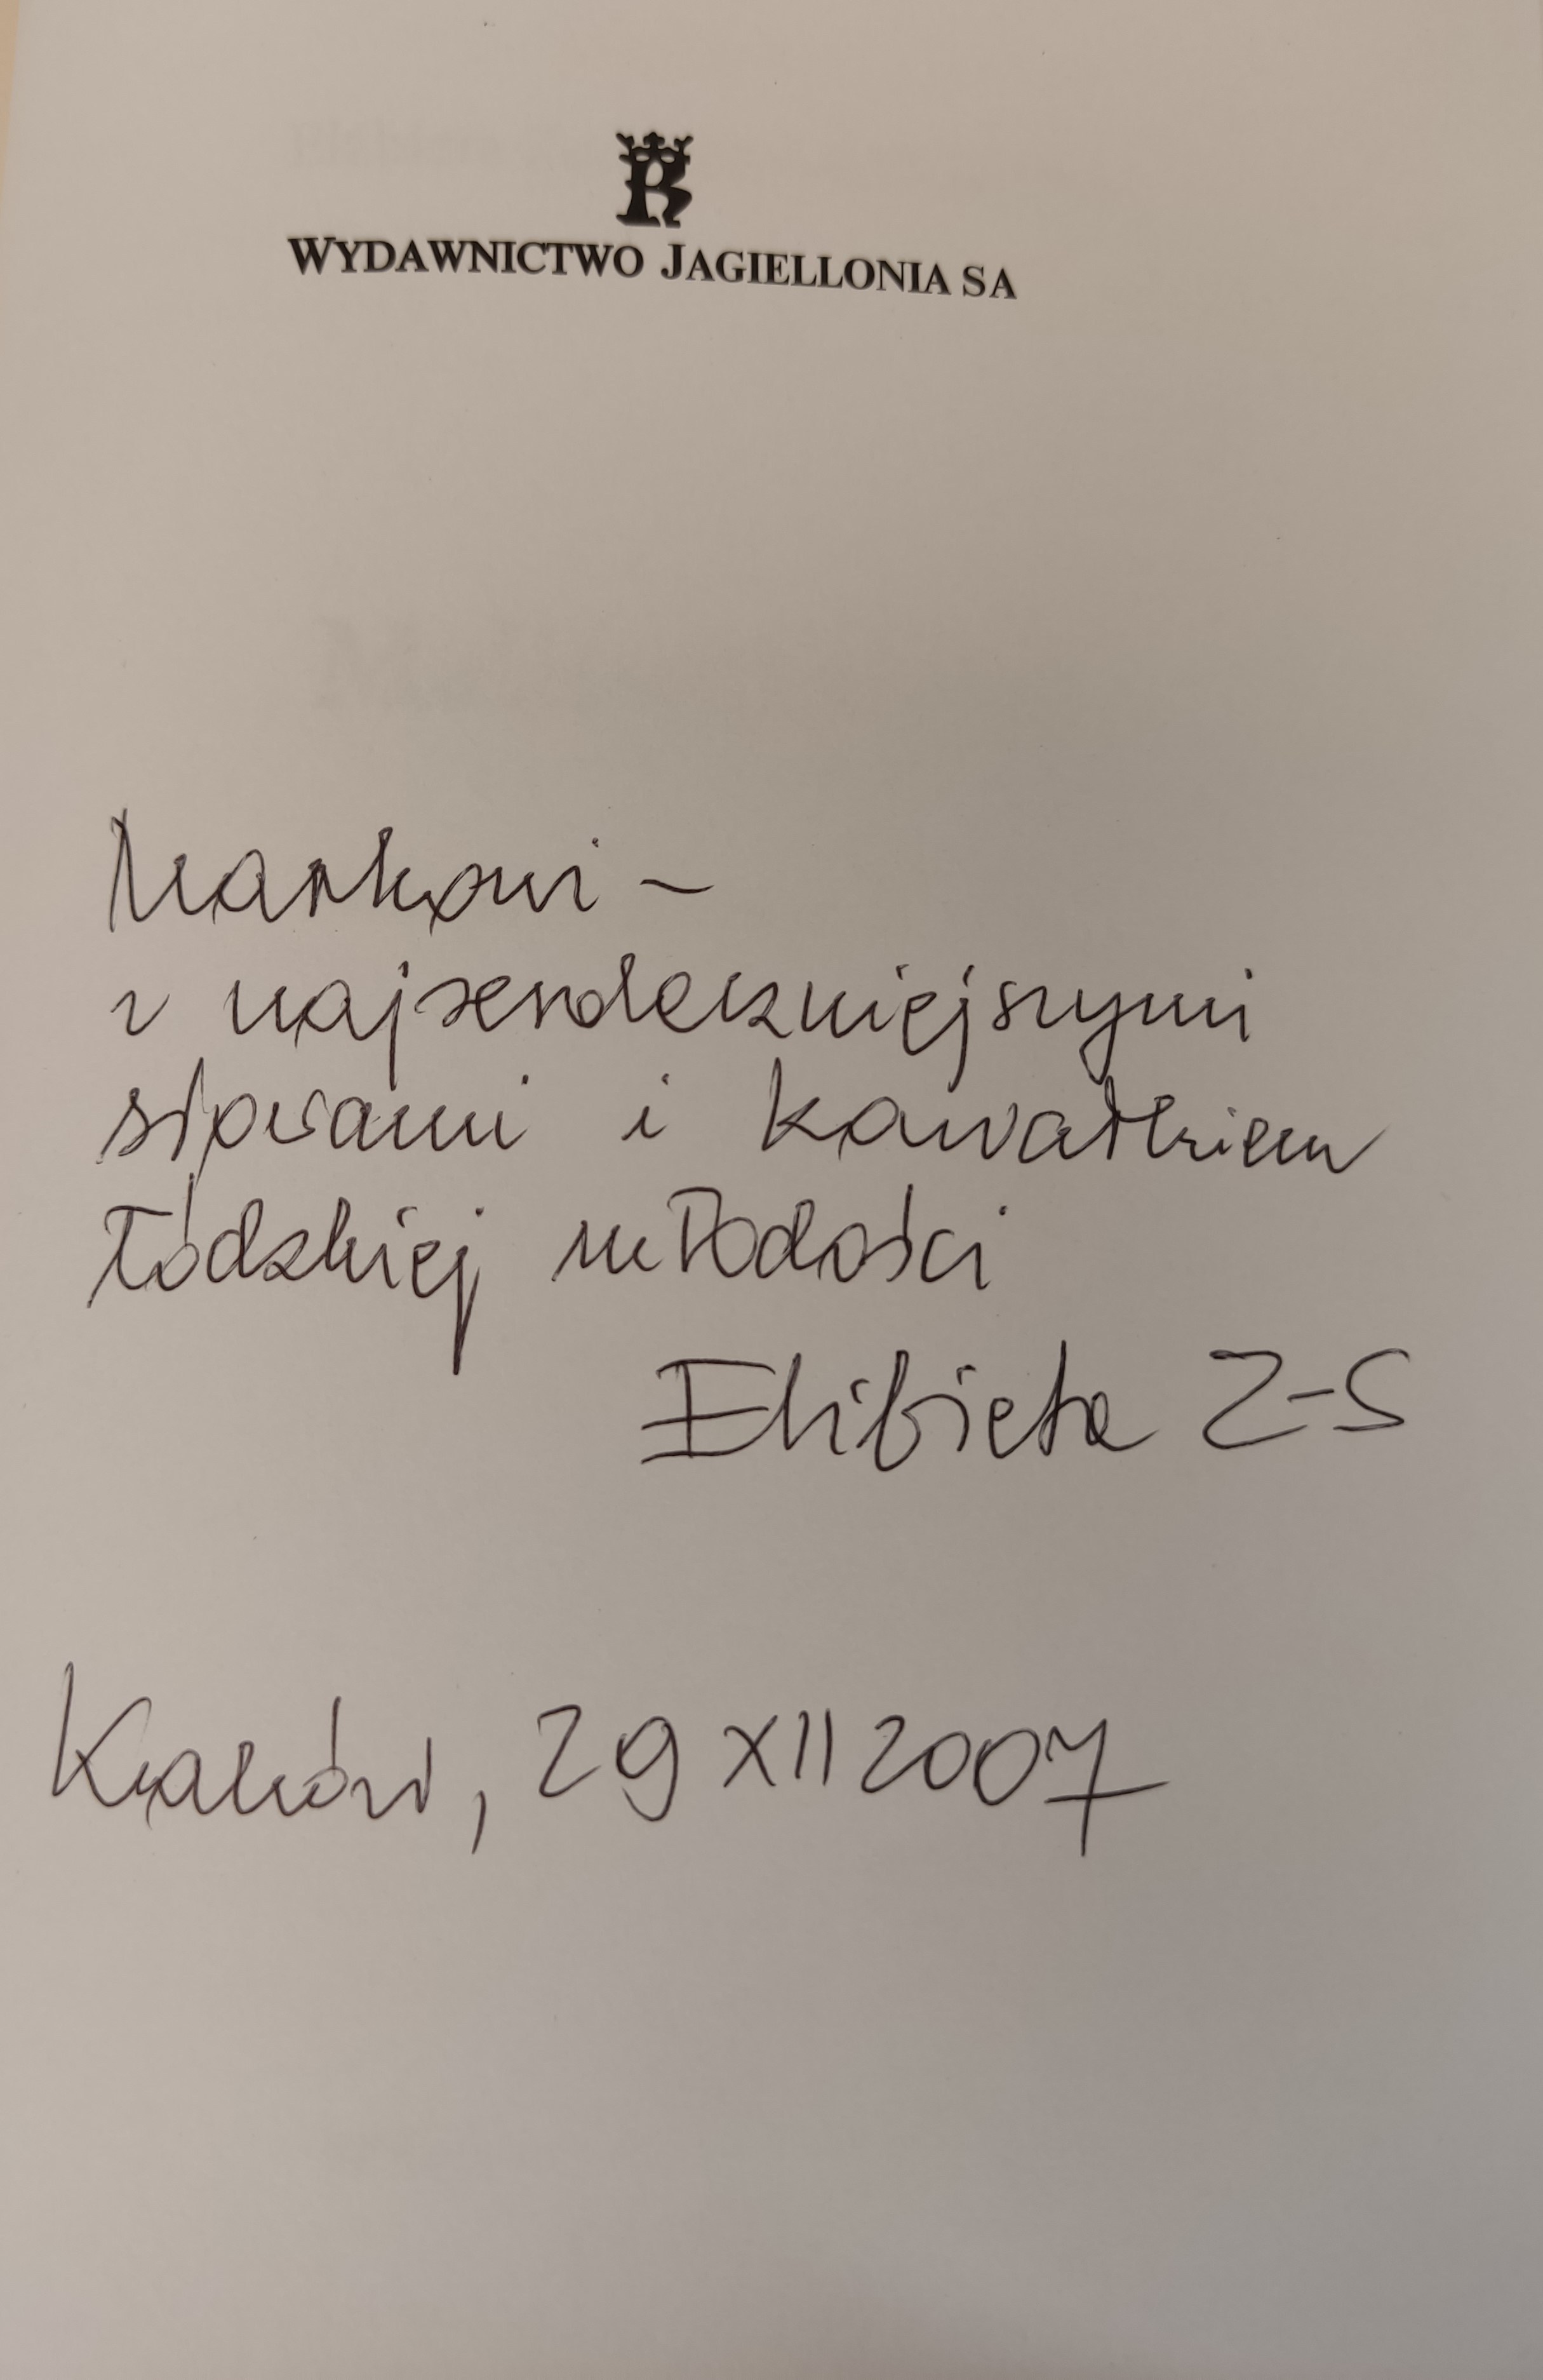 WYDAWNICTWO JAGIELLONIA SA
Markowi –
z najserdeczniejszymi
słowami i kawałkiem
łódzkiej młodości
Elżbieta Z-S
Kraków, 29 XII 2007